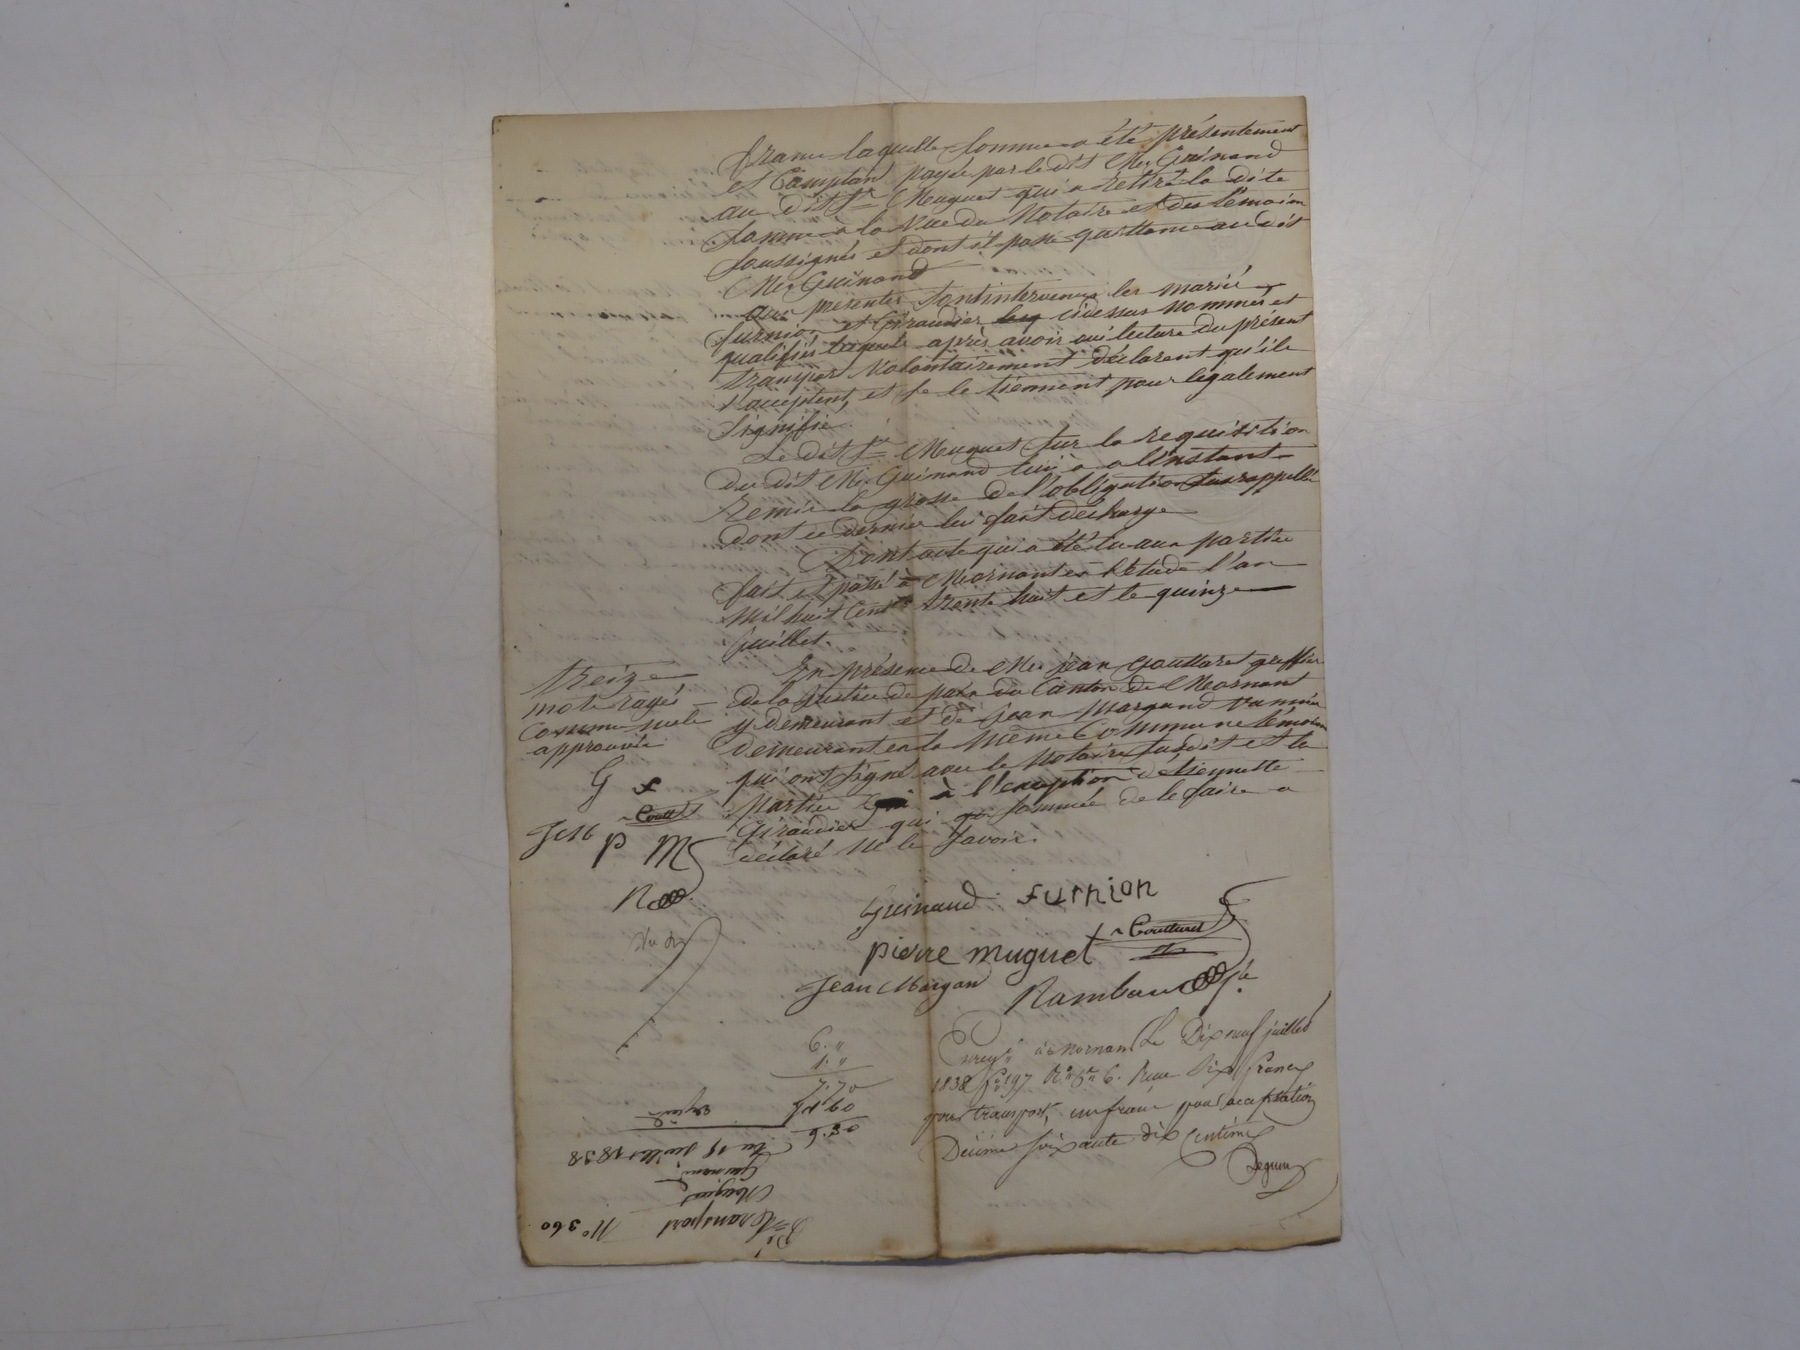 francs laquelle somme a été présentement
et Comptant payée par le dit Me. Guinand
au dit Sr. Muguet qui a retiré la dite
somme à la vue du Notaire et des témoins
soussignés et dont il passe quittance au dit
Me. Guinand
aux présentes sont intervenus les mariés
furnion et Giraudier cidessus nommés et
qualifiés lesquels après avoir ouï lecture du présent
transport volontairement déclarent qu'ils
l'acceptent, et se le tiennent pour légalement
signifié.
Le dit Sr. Muguet sur la requisition
du dit Me. Guinand lui a à l'instant
remis la grosse de l'obligation susrappellée
dont ce dernier lui fait décharge
Dont acte qui a été lu aux parties
fait et passé à Mornant en l'étude l'an
mil huit Cent trente huit et le quinze
Juillet.
En présence de Me. jean Goutaret greffier
de la justice de paix du Canton de Mornant
y demeurant et de jean margand
demeurant en la même Commune témoins
qui ont signé avec le Notaire susdit et les
parties à l'exception d'etiennette
Giraudier qui sommée de le faire a
déclaré ne le savoir.
treize
mots rayés
comme nuls
approuvés
G f
P M
Guinand furnion
pierre muguet
Jean Margan
Rambaud
6. "
1. "
7. 70
Enregé. à Mornant Le Dix neuf juillet
1838 fo. 197 Ro. Ce. 6. Reçu Six francs
pour transport, un franc pour acceptation
Décime soixante dix Centimes
du 15 Juillet 1838
Guinand
Muguet
transport
No 360